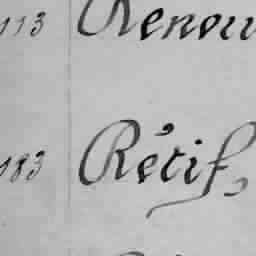 113 Renou
183 Rétif,